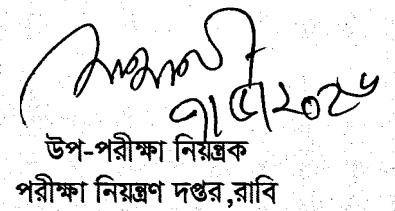 ৭/৫/২০২৬
উপ-পরীক্ষা নিয়ন্ত্রক
পরীক্ষা নিয়ন্ত্রণ দপ্তর,রাবি